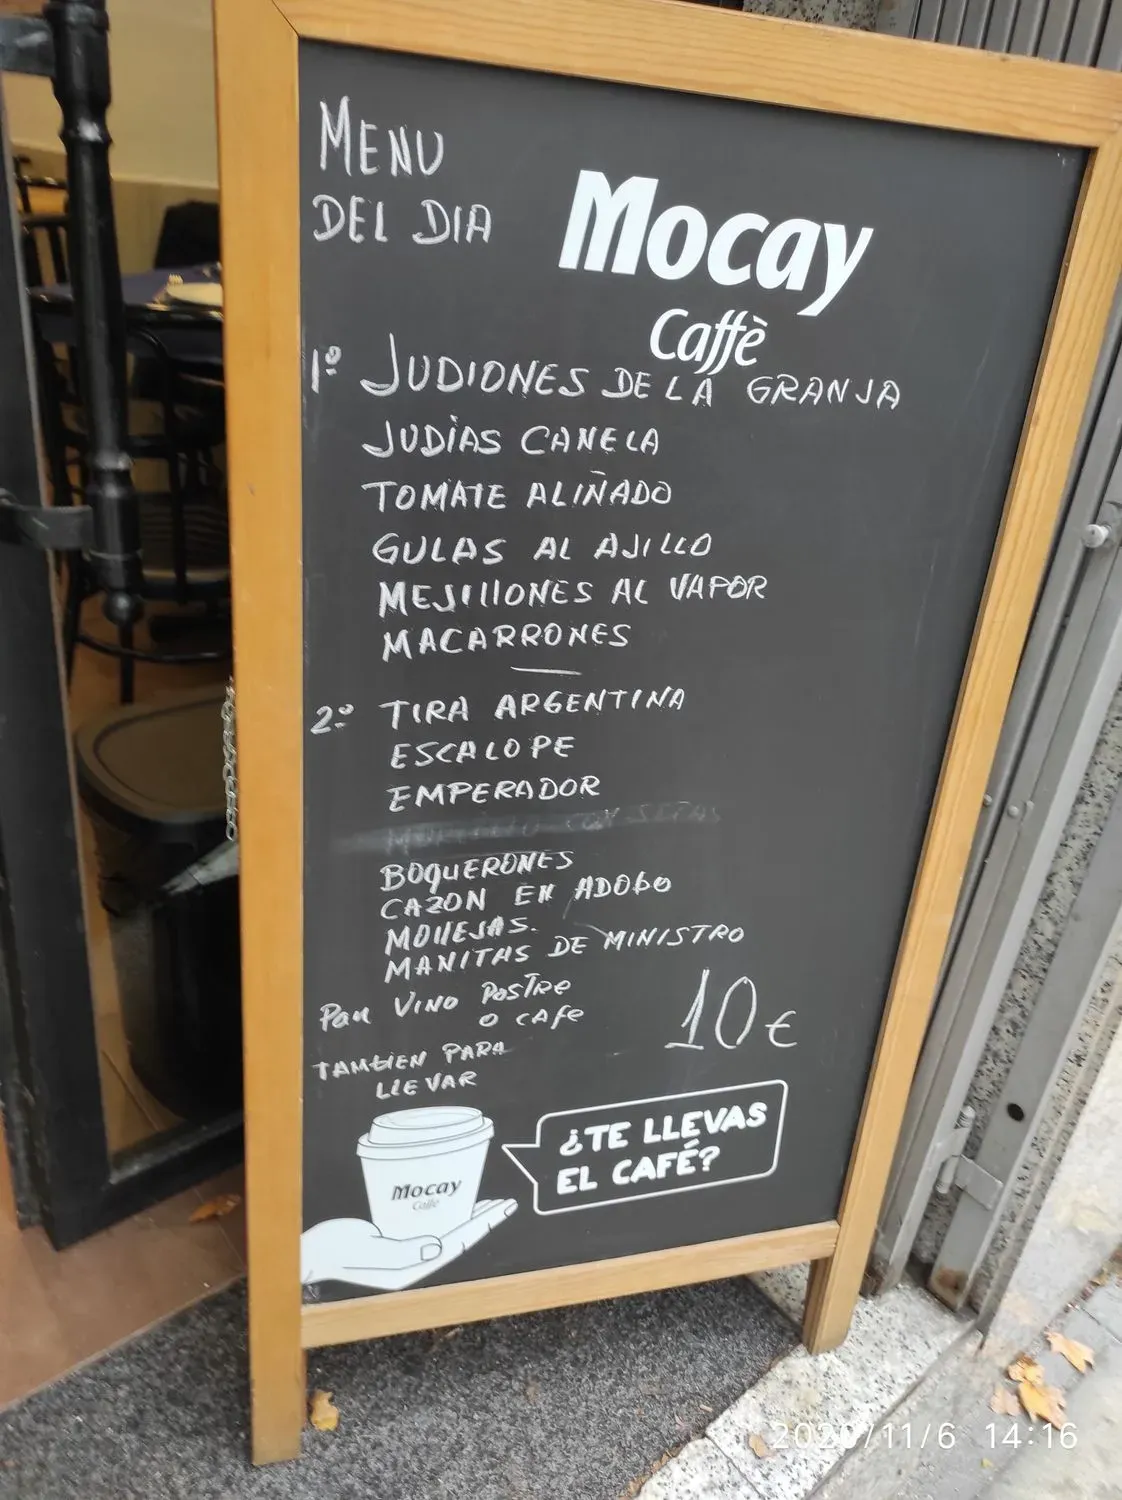 MENU
DEL DIA
Mocay
Caffè
1º JUDIONES DE LA GRANJA
JUDÍAS CANELA
TOMATE ALIÑADO
GULAS AL AJILLO
MEJILLONES AL VAPOR
MACARRONES
2º TIRA ARGENTINA
ESCALOPE
EMPERADOR
CON SETAS
BOQUERONES
CAZON EN ADOBO
MOLLEJAS.
MANITAS DE MINISTRO
Pan VINO POSTRE
O CAFE
10€
TAMBIEN PARA
LLEVAR
¿TE LLEVAS
EL CAFÉ?
Mocay
Caffè
2020/11/6 14:16